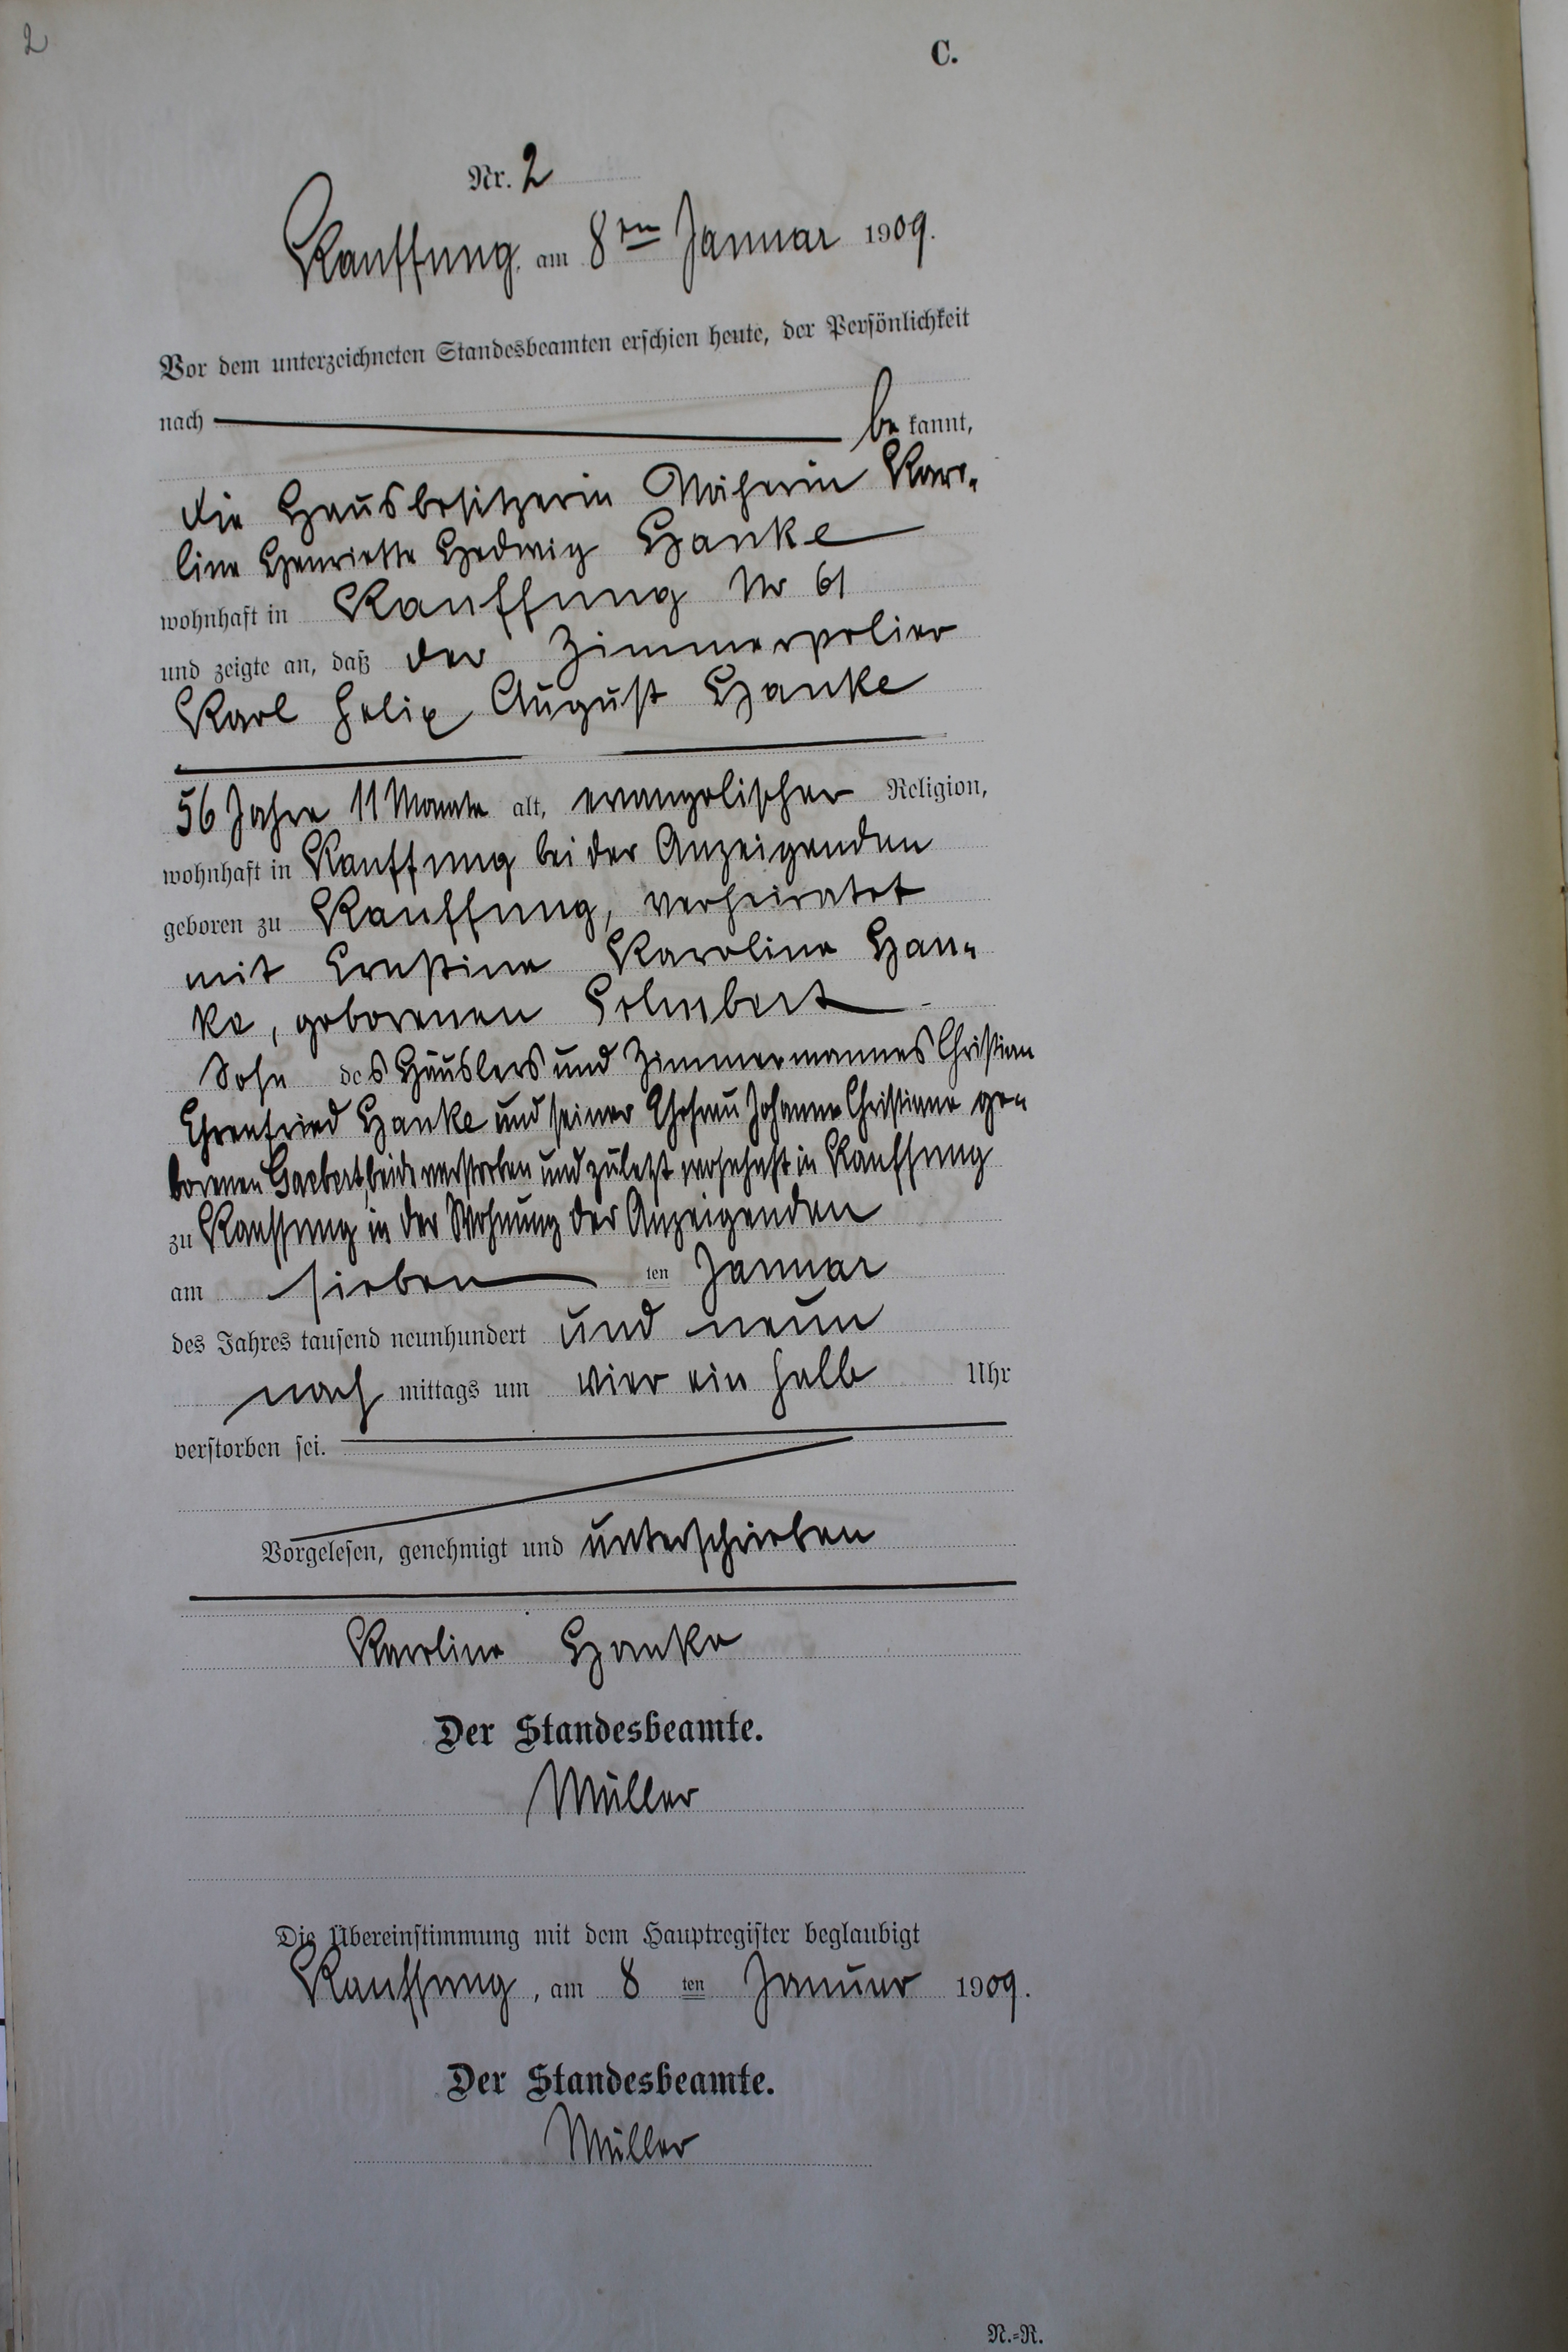 2
C.
Nr. 2
Kauffung, am 8ten Januar 1909.
Vor dem unterzeichneten Standesbeamten erschien heute, der Persönlichkeit
nach be kannt,
die Hausbesitzerin Näherin Karo-
line Henriette Hedwig Hanke
wohnhaft in Kauffung Nr 61
und zeigte an, daß der Zimmerpolier
Karl Felix August Hanke
56 Jahre 11 Monate alt, evangelischer Religion,
wohnhaft in Kauffung bei der Anzeigenden
geboren zu Kauffung, verheiratet
mit Ernstine Karoline Han-
ke, geborenen
Sohn des Häuslers und Zimmermannes Christian
Ehrenfried Hanke und seiner Ehefrau Johanne Christiane ge-
borenen beide verstorben und zuletzt wohnhaft in Kauffung
zu Kauffung in der Wohnung der Anzeigenden
am sieben ten Januar
des Jahres tausend neunhundert und neun
nach mittags um vier ein halb Uhr
verstorben sei.
Vorgelesen, genehmigt und unterschrieben
Karoline Hanke
Der Standesbeamte.
Müller
Die Übereinstimmung mit dem Hauptregister beglaubigt
Kauffung, am 8 ten Januar 1909.
Der Standesbeamte.
Müller
N.-R.